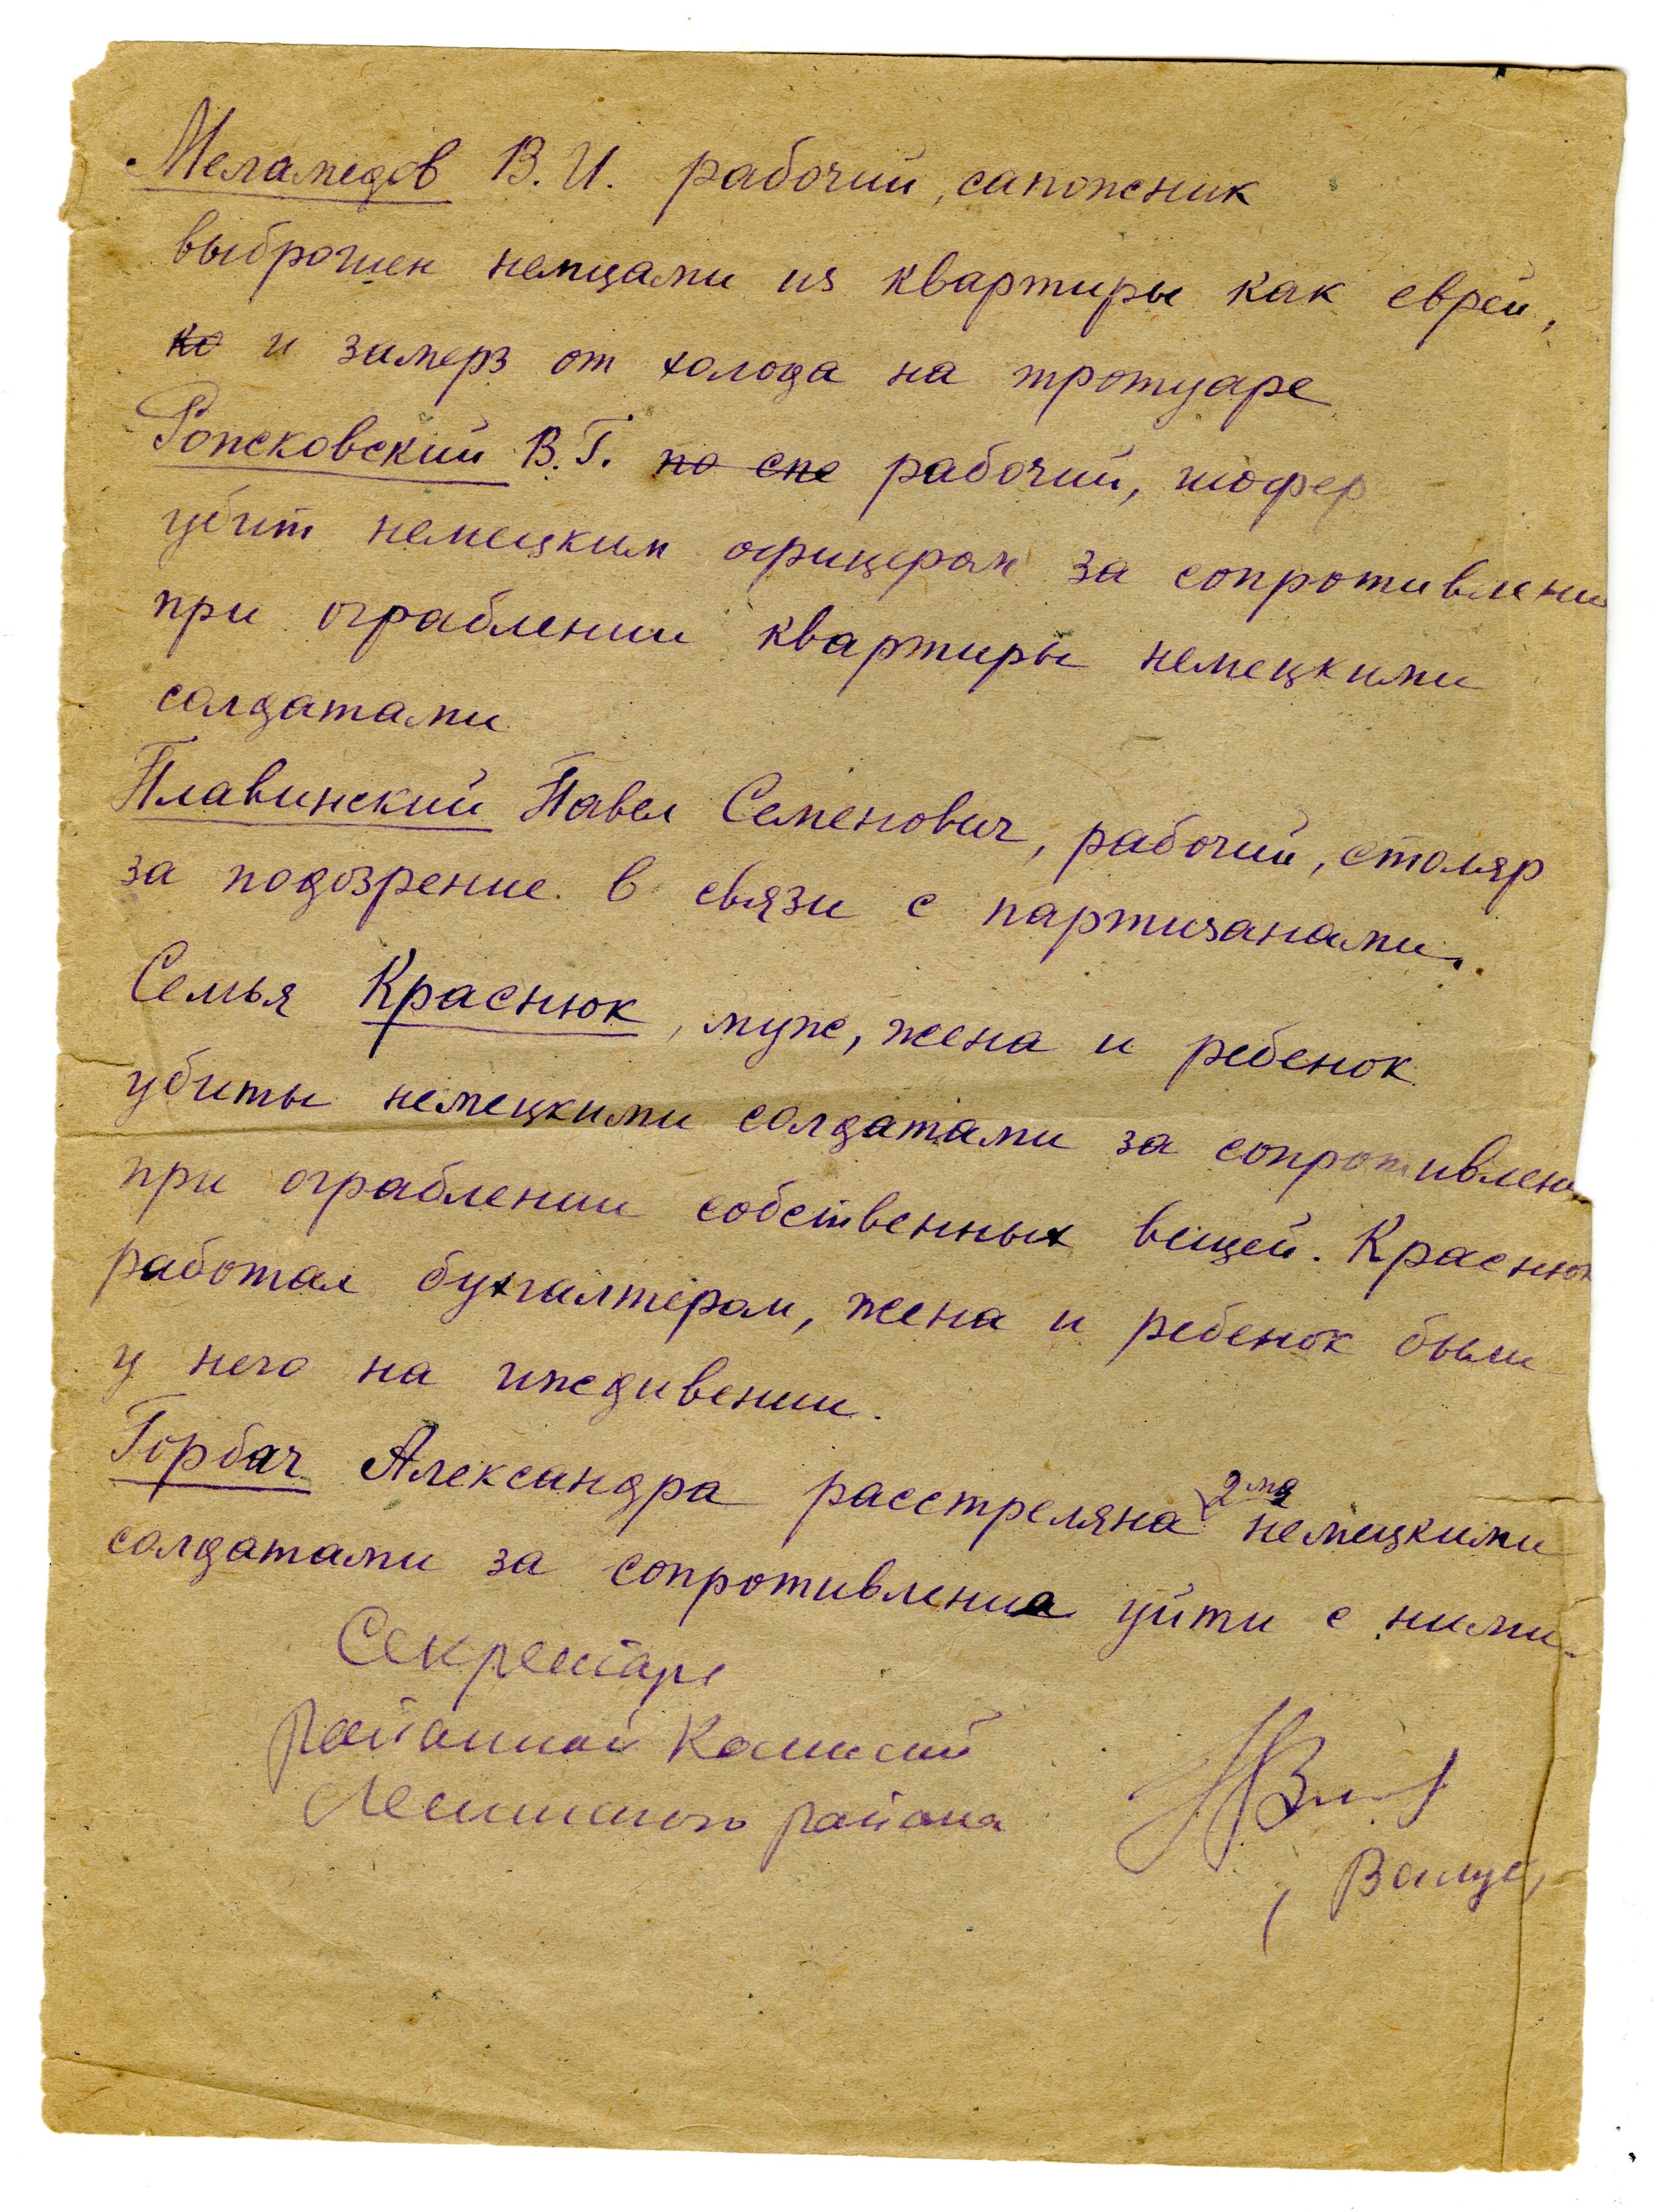 Меламедов В. И. рабочий, сапожник
выброшен немцами из квартиры как еврей,
ко и замерз от холода на тротуаре
Рожковский В. Г. по спе рабочий, шофер
убит немецким офицером за сопротивлени
при ограблении квартиры немецкими
солдатами
Плавинский Павел Семенович, рабочий, столяр
за подозрение в связи с партизанами.
Семья Краснюк, муж, жена и ребенок
убиты немецкими солдатами за сопротивлени
при ограблении собственных вещей. Краснюк
работал бухгалтером, жена и ребенок были
у него на иждивении.
Горбач Александра расстреляна 2мя немецкими
солдатами за сопротивления уйти с ними.
Секретарь
районной комиссий
Ленинского района